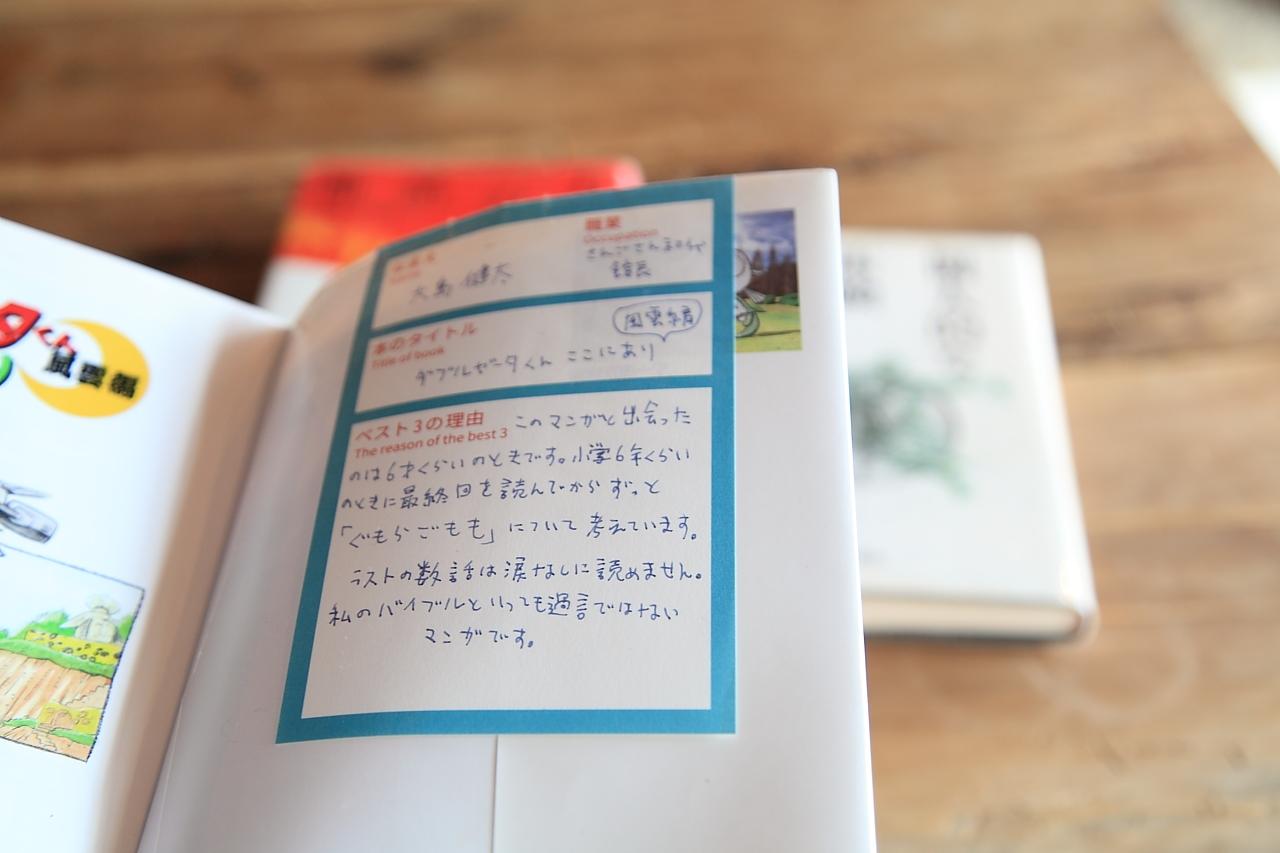 くん
風雲編
お名前
Name
大島 健太
職業
Occupation
さんごさん
館長
本のタイトル
Title of book
風雲編
ダブルゼータくん ここにあり
ベスト3の理由
The reason of the best 3
このマンガと出会った
のは6才くらいのときです。小学6年くらい
のときに最終回を読んでから ずっと
「ぐもらごもも」について 考えています。
ラストの数話は涙なしに読めません。
私のバイブルといっても過言ではない
マンガです。